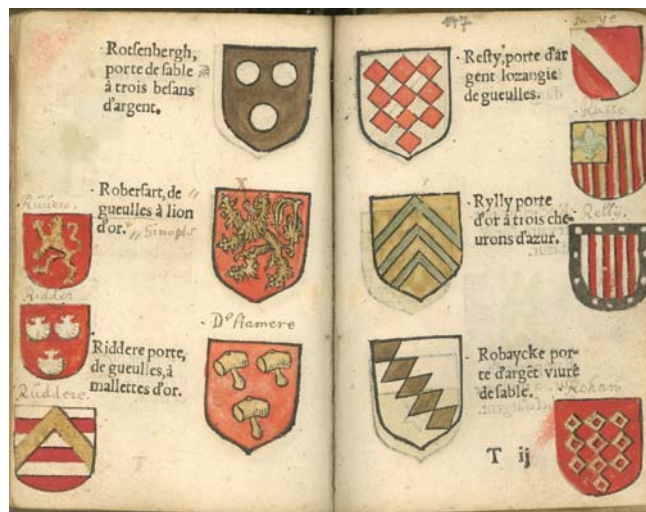 Rotsenbergh,
porte de sable
à trois besans
d'argent.
Robersart, de
gueulles à lion
d'or. Sinople
Ridder
Riddere porte,
de gueulles, à
mallettes d'or.
Ruddere.
Dᵉ Stamere
147
Resty, porte d'ar
gent lozangie
de gueulles.
Rylly porte
d'or à trois che-
urons d'azur.
Robaycke por-
te d'argēt viure
de sable.
T ij
Russe
Relly.
Rohan